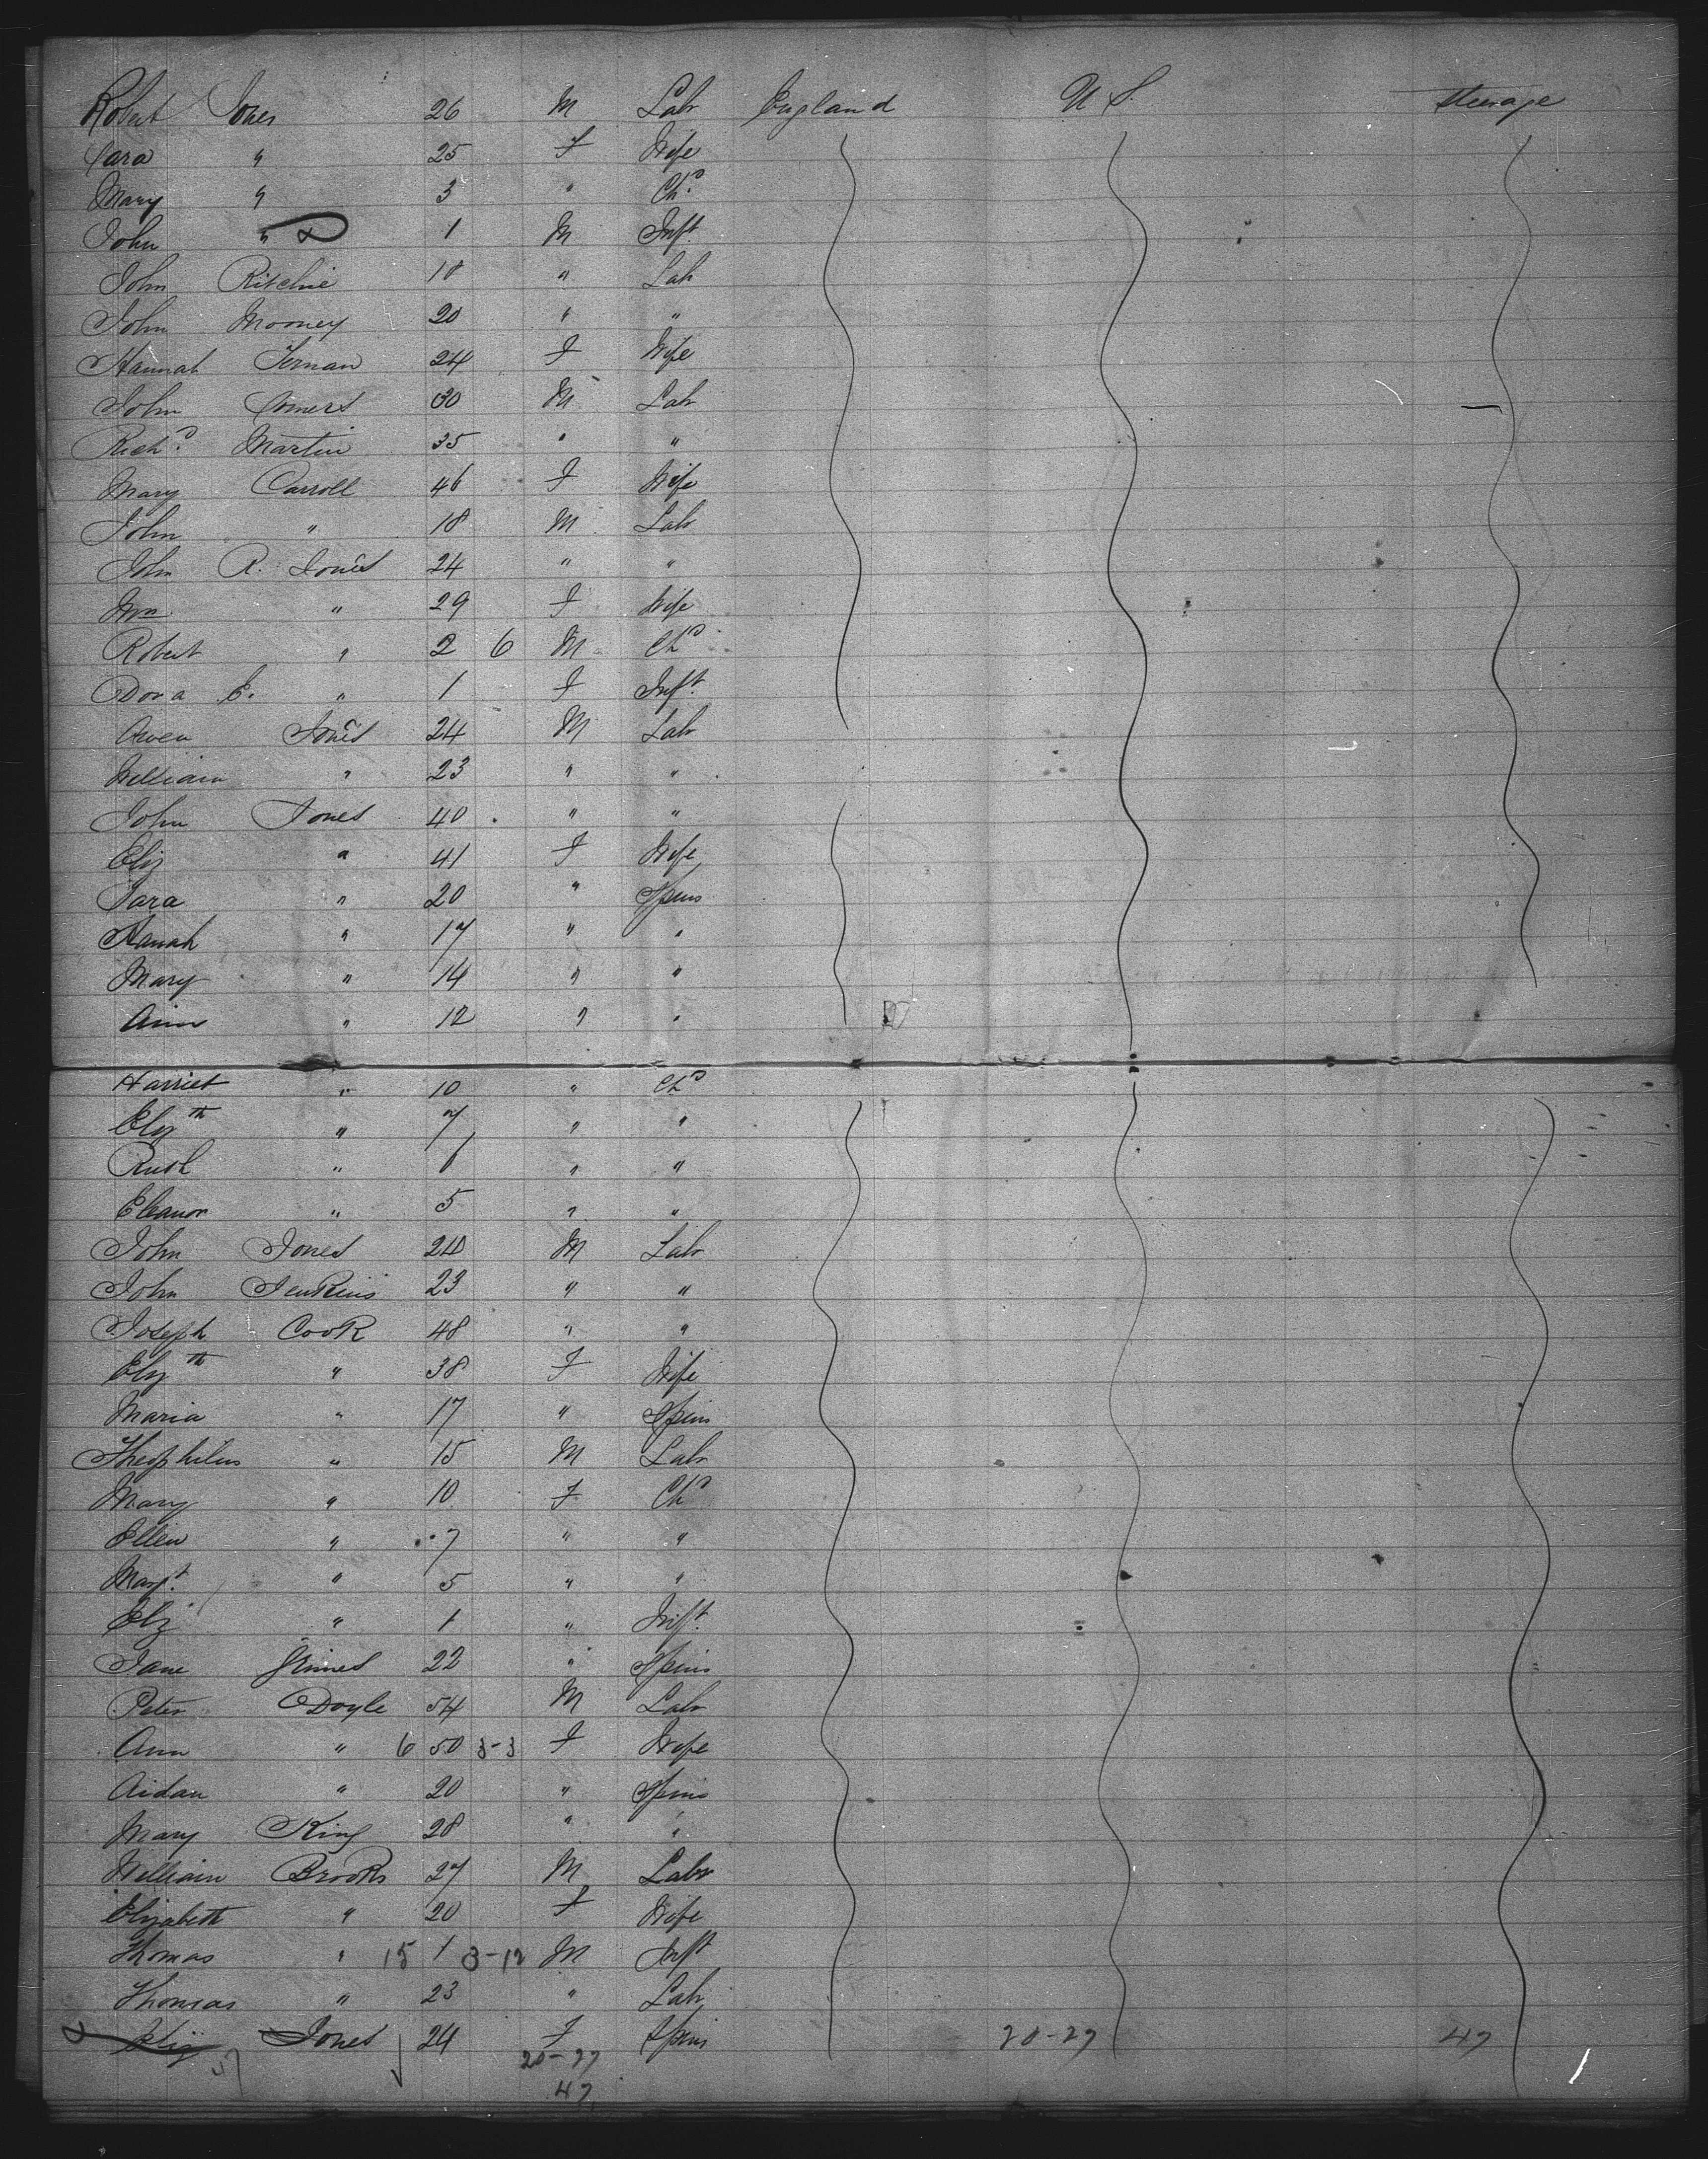 Robert Jones 26 M Lab England U S. Steerage
Sara " 25 F Wife
Mary " 3 " Chd
John " 1 M Inft.
John Ritchie 18 " Lab
John Mooney 20 " "
Hannah 24 F Wife
John Comers 30 M Lab
Richd. Martin 35 " "
Mary Carroll 46 F Wife
John " 18 M Lab
John R. Jones 24 " "
" 29 F Wife
Robert " 2 6 M Chd
Dora E. " 1 F Inft.
Owen Jones 24 M Lab
William " 23 " "
John Jones 40 " "
Eliz " 41 F Wife
Sara " 20 " Spins
Hanah " 17 " "
Mary " 14 " "
Ann " 12 " "
Harriet " 10 " Chd
Elizth " 7 " "
Ruth " 6 " "
Eleanor " 5 " "
John Jones 20 M Lab
John Jenkins 23 " "
Joseph Cook 48 " "
Elizth " 38 F Wife
Maria " 17 " Spins
Theophilus " 15 M Lab
Mary " 10 F Chd
Ellen " 7 " "
Margt. " 5 " "
Eliz " 1 " Inft.
Jane Grimes 22 " Spins
Peter Doyle 54 M Lab
Ann " 6 50 3-3 F Wife
Aidan " 20 " Spins
Mary King 28 " "
William Brooks 27 M Labr
Elizabeth " 20 F Wife
Thomas " 15 1 3-12 M Inft
Thomas " 23 " Lab
Eliz Jones 24 F Spins 20-27 47
20-27
47